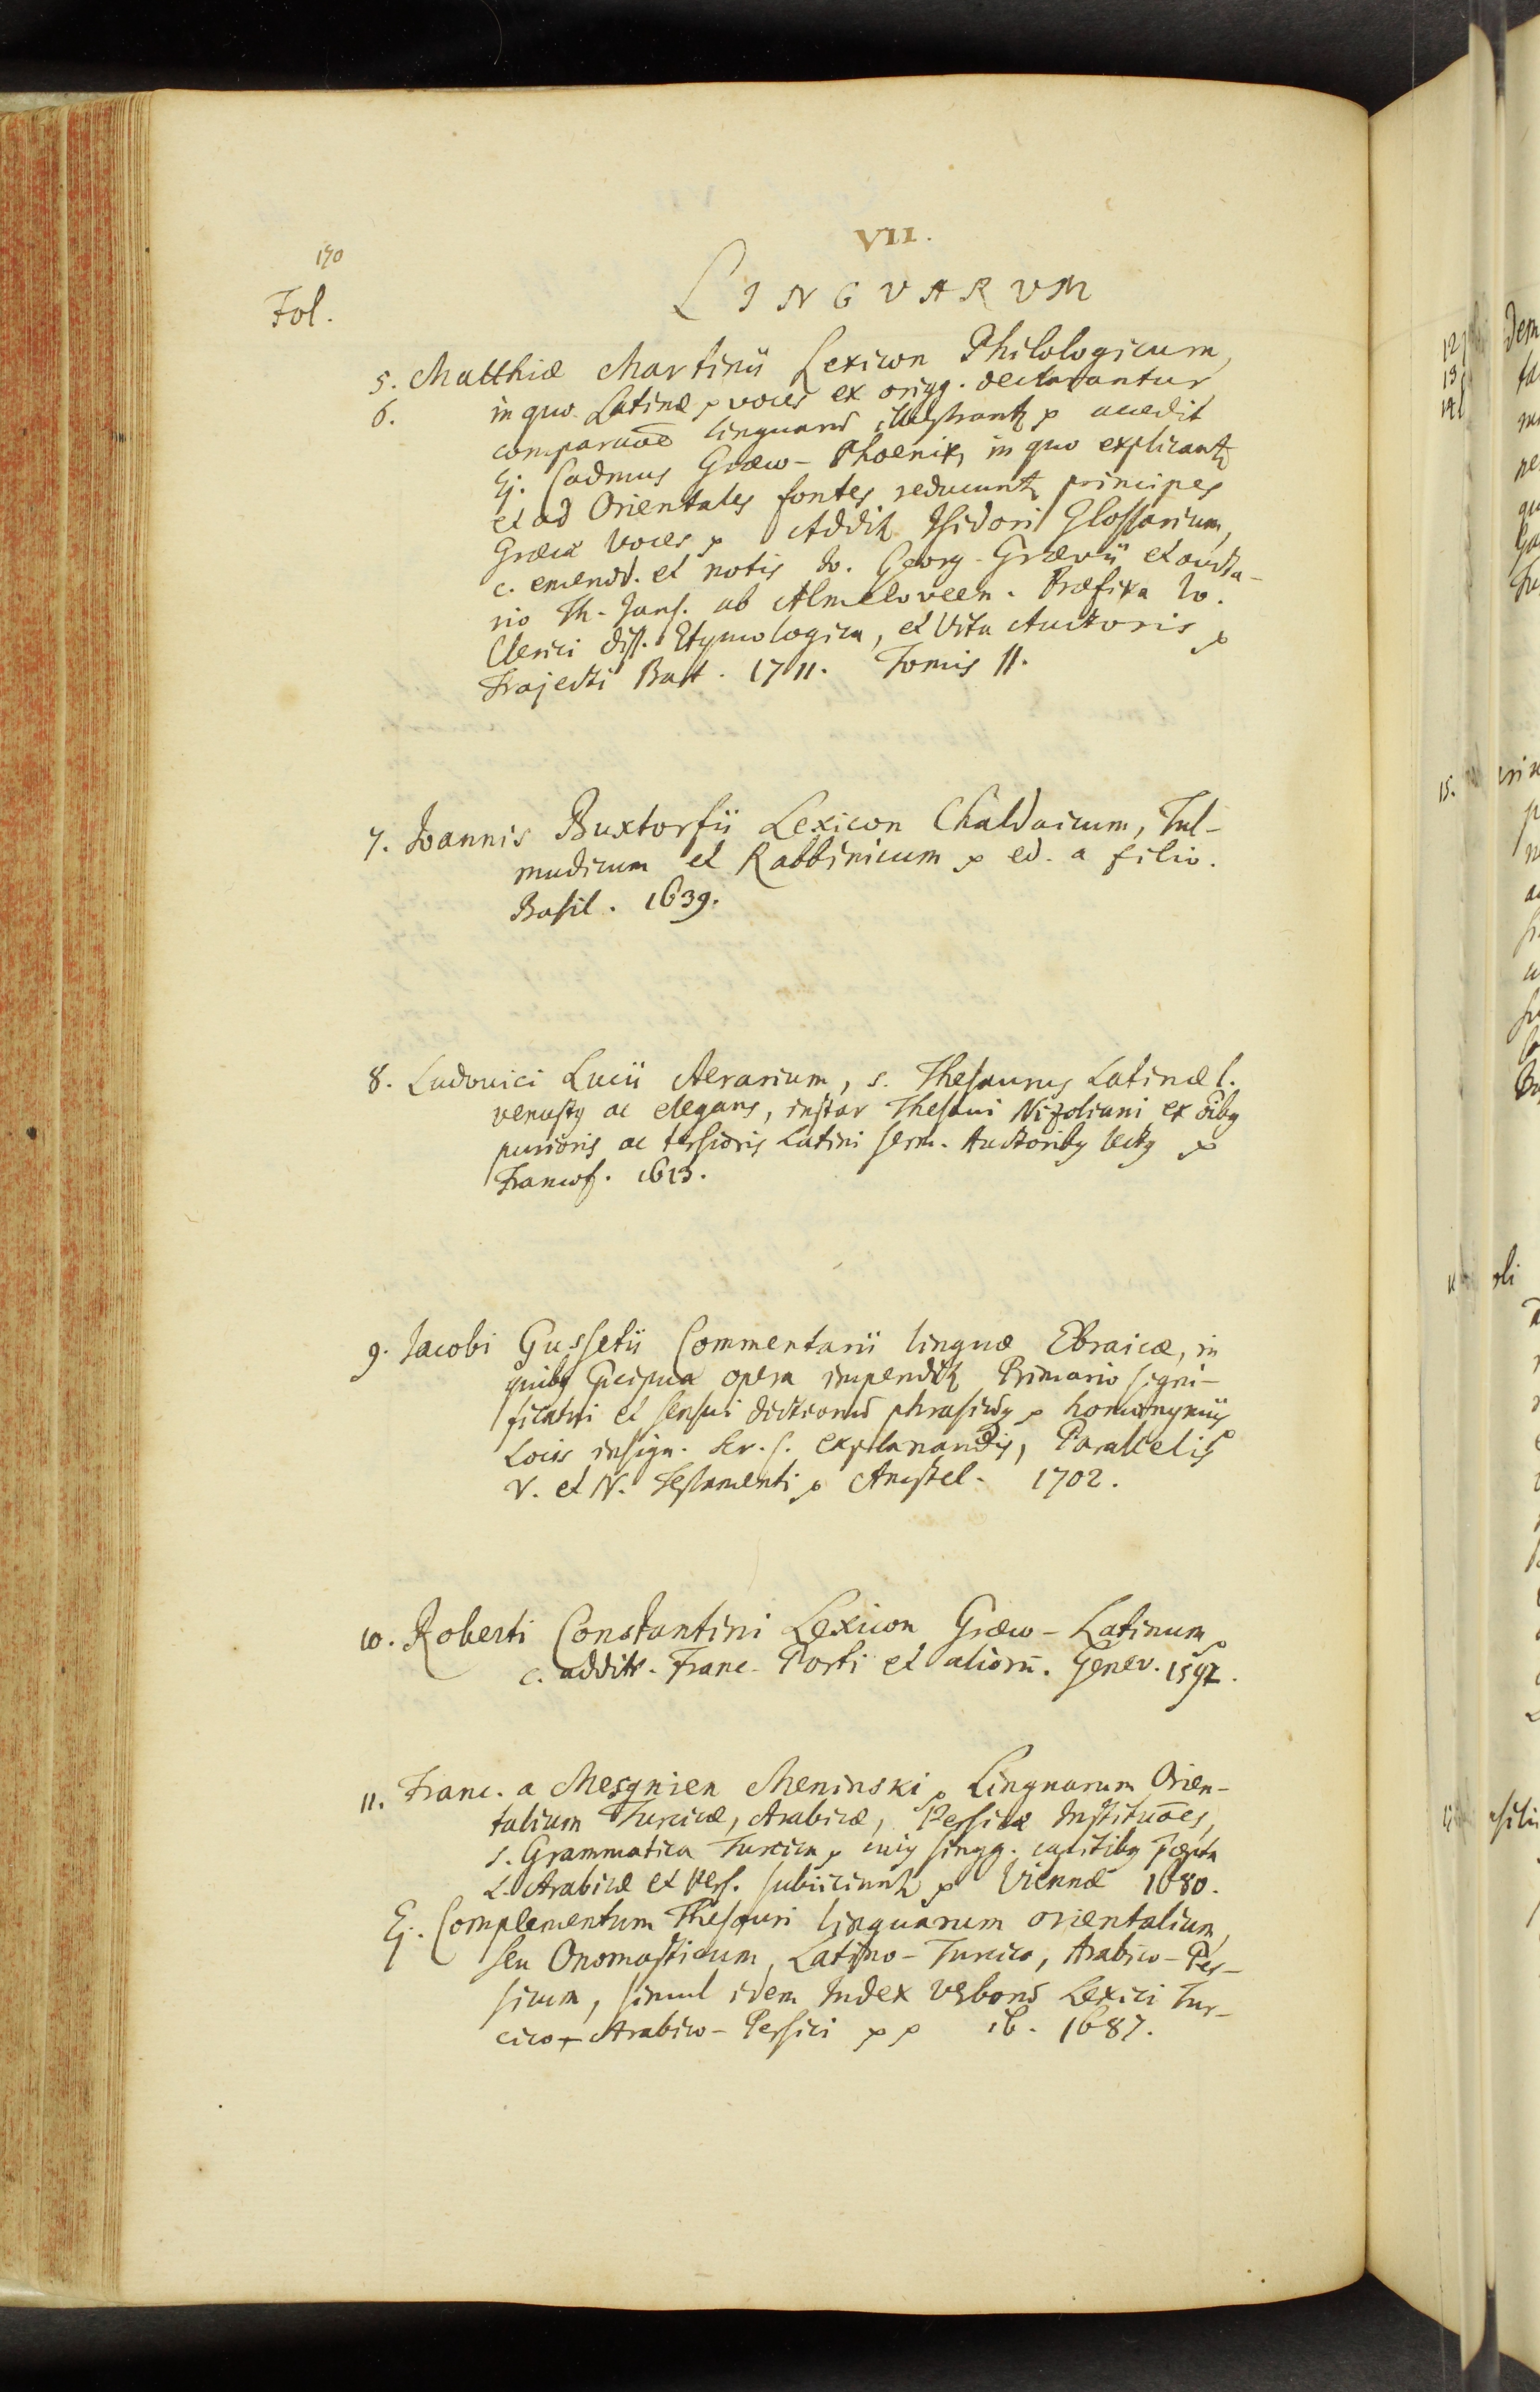 VII.
190
Fol.
LINGVARVM
5. Matthiæ Martinii Lexicon Philologicum,
6. in quo Latinæ voces ex origg. declarantur
comparatõe linguarũ illustrantr accedit
Ej. Cadmus Græco-Phoenix, in quo explicantr
et ad Orientales fontes reducuntr principes
Græcæ voces Additr Isidori Glossarium,
c. emendd. et notis Io. Georg. Grævii et aucta-
rio Th. Jans. ab Almeloveen. Præfixa Io.
Clerici diss. Etymologica, et Vita Auctoris
Trajecti Bat. 1711. Tomis II.
7. Ioannis Buxtorfii Lexicon Chaldaicum, Tal-
mudicum et Rabbinicum ed. a filio.
Basil. 1639.
8. Ludovici Lucii Aerarium, s. Thesaurus Latinæ l.
venustus ac elegans, instar Thesauri Nizoliani ex oibus
purioris ac tersioris Latini serm. Auctoribus
Francof. 1613.
9. Jacobi Gussetii Commentarii linguæ Ebraicæ, in
quibus præcipua opera impenditr Primario signi-
ficatui et sensui dictionũ phrasiũq homonymiis
Locis insign. Scr. s. explanandis, Parallelis
V. et N. Testamenti Amstel. 1702.
10. Roberti Constantini Lexicon Græco-Latinum
c. addit. Franc. Porti et aliorũ. Genev. 1592.
11. Franc. a Mesgnien Meninski Linguarum Orien-
talium Turcicæ, Arabicæ, Persicæ Institutões,
s. Grammatica Turcica cuius singg. capitibus præcepta
L. Arabicæ et Pers. subiiciuntr Viennæ 1680.
Ej. Complementum Thesauri linguarum orientalium,
seu Onomasticum Latino-Turcico, Arabico-Per-
sicum, simul idem Index verborũ Lexici Tur-
cico-Arabico-Persici ib. 1687.
12
13
14
15.